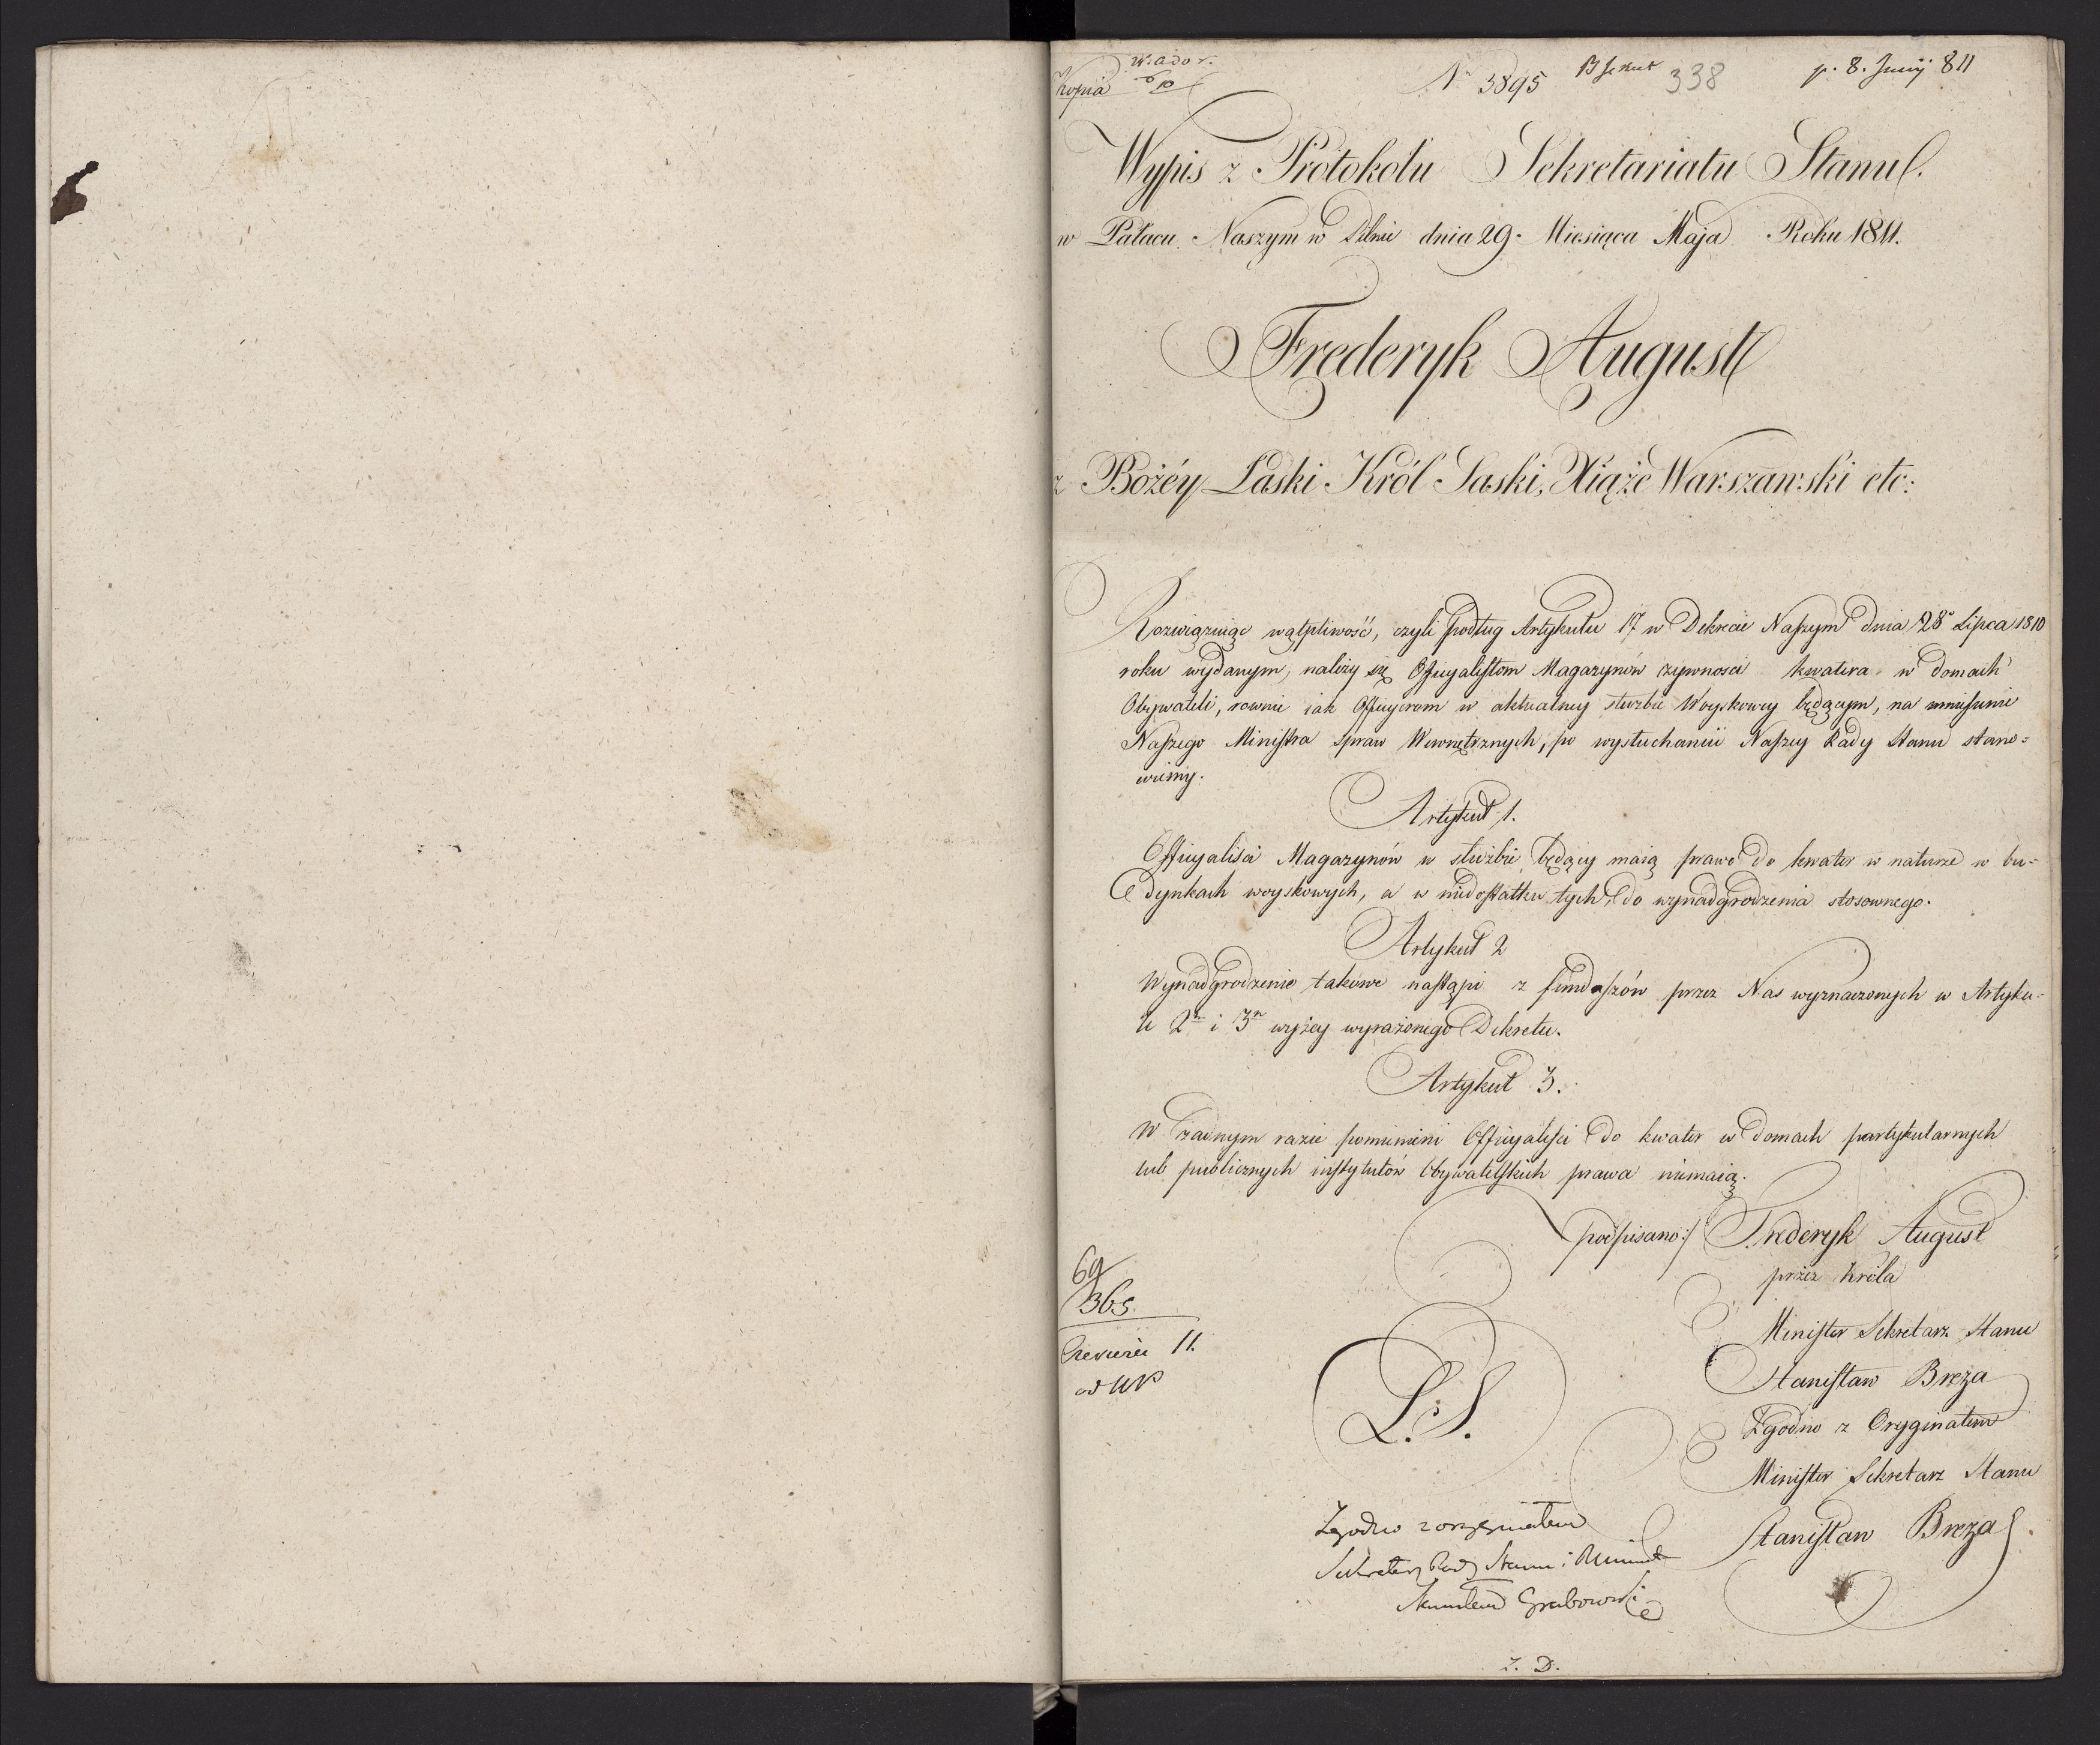 Kopia
N 3895
338
p. 8. Junij 811
Wypis z Protokołu Sekretariatu Stanu.
w Pałacu Naszym w Pilnie dnia 29. Miesiąca Maja Roku 1811.
Frederyk August
z Bożéy Łaski Król Saski, Xiąże Warszawski etc:
Rozwiązuiąc wątpliwość, czyli podług Artykułu 17 w Dekrecie Naszym dnia 28º Lipca 1810
roku wydanym, należy się Officyalistom Magazynów żywności kwatera w domach
Obywateli, rownie iak Officyerom w aktualney służbie Woyskowey będącym, na wniesienie
Naszego Ministra Spraw Wewnętrznych, po wysłuchaniu Naszey Rady Stanu stano=
wiemy.
Artykuł 1.
Officyaliści Magazynów w służbie będący maią prawo do kwater w naturze w bu=
dynkach woyskowych, a w niedostatku tych, do wynadgrodzenia stosownego.
Artykuł 2
Wynadgrodzenie takowe nastąpi z funduszów przez Nas wyznaczonych w Artyku=
le 2m i 3m wyżey wyrażonego Dekretu.
Artykuł 3.
W żadnym razie pomienieni Officyaliści do kwater w domach partykularnych
lub publicznych instytutów Obywatelskich prawa niemaią.
podpisano:/ Frederyk August
przez Króla
Minister Sekretarz Stanu
Stanisław Breza
Zgodno z Oryginałem
Minister Sekretarz Stanu
Stanisław Breza
69
365
11.
L. S.
Zgodno z oryginałem
Sekretarz Rady Stanu i Minist
Stanisław Grabowski
Z. D.